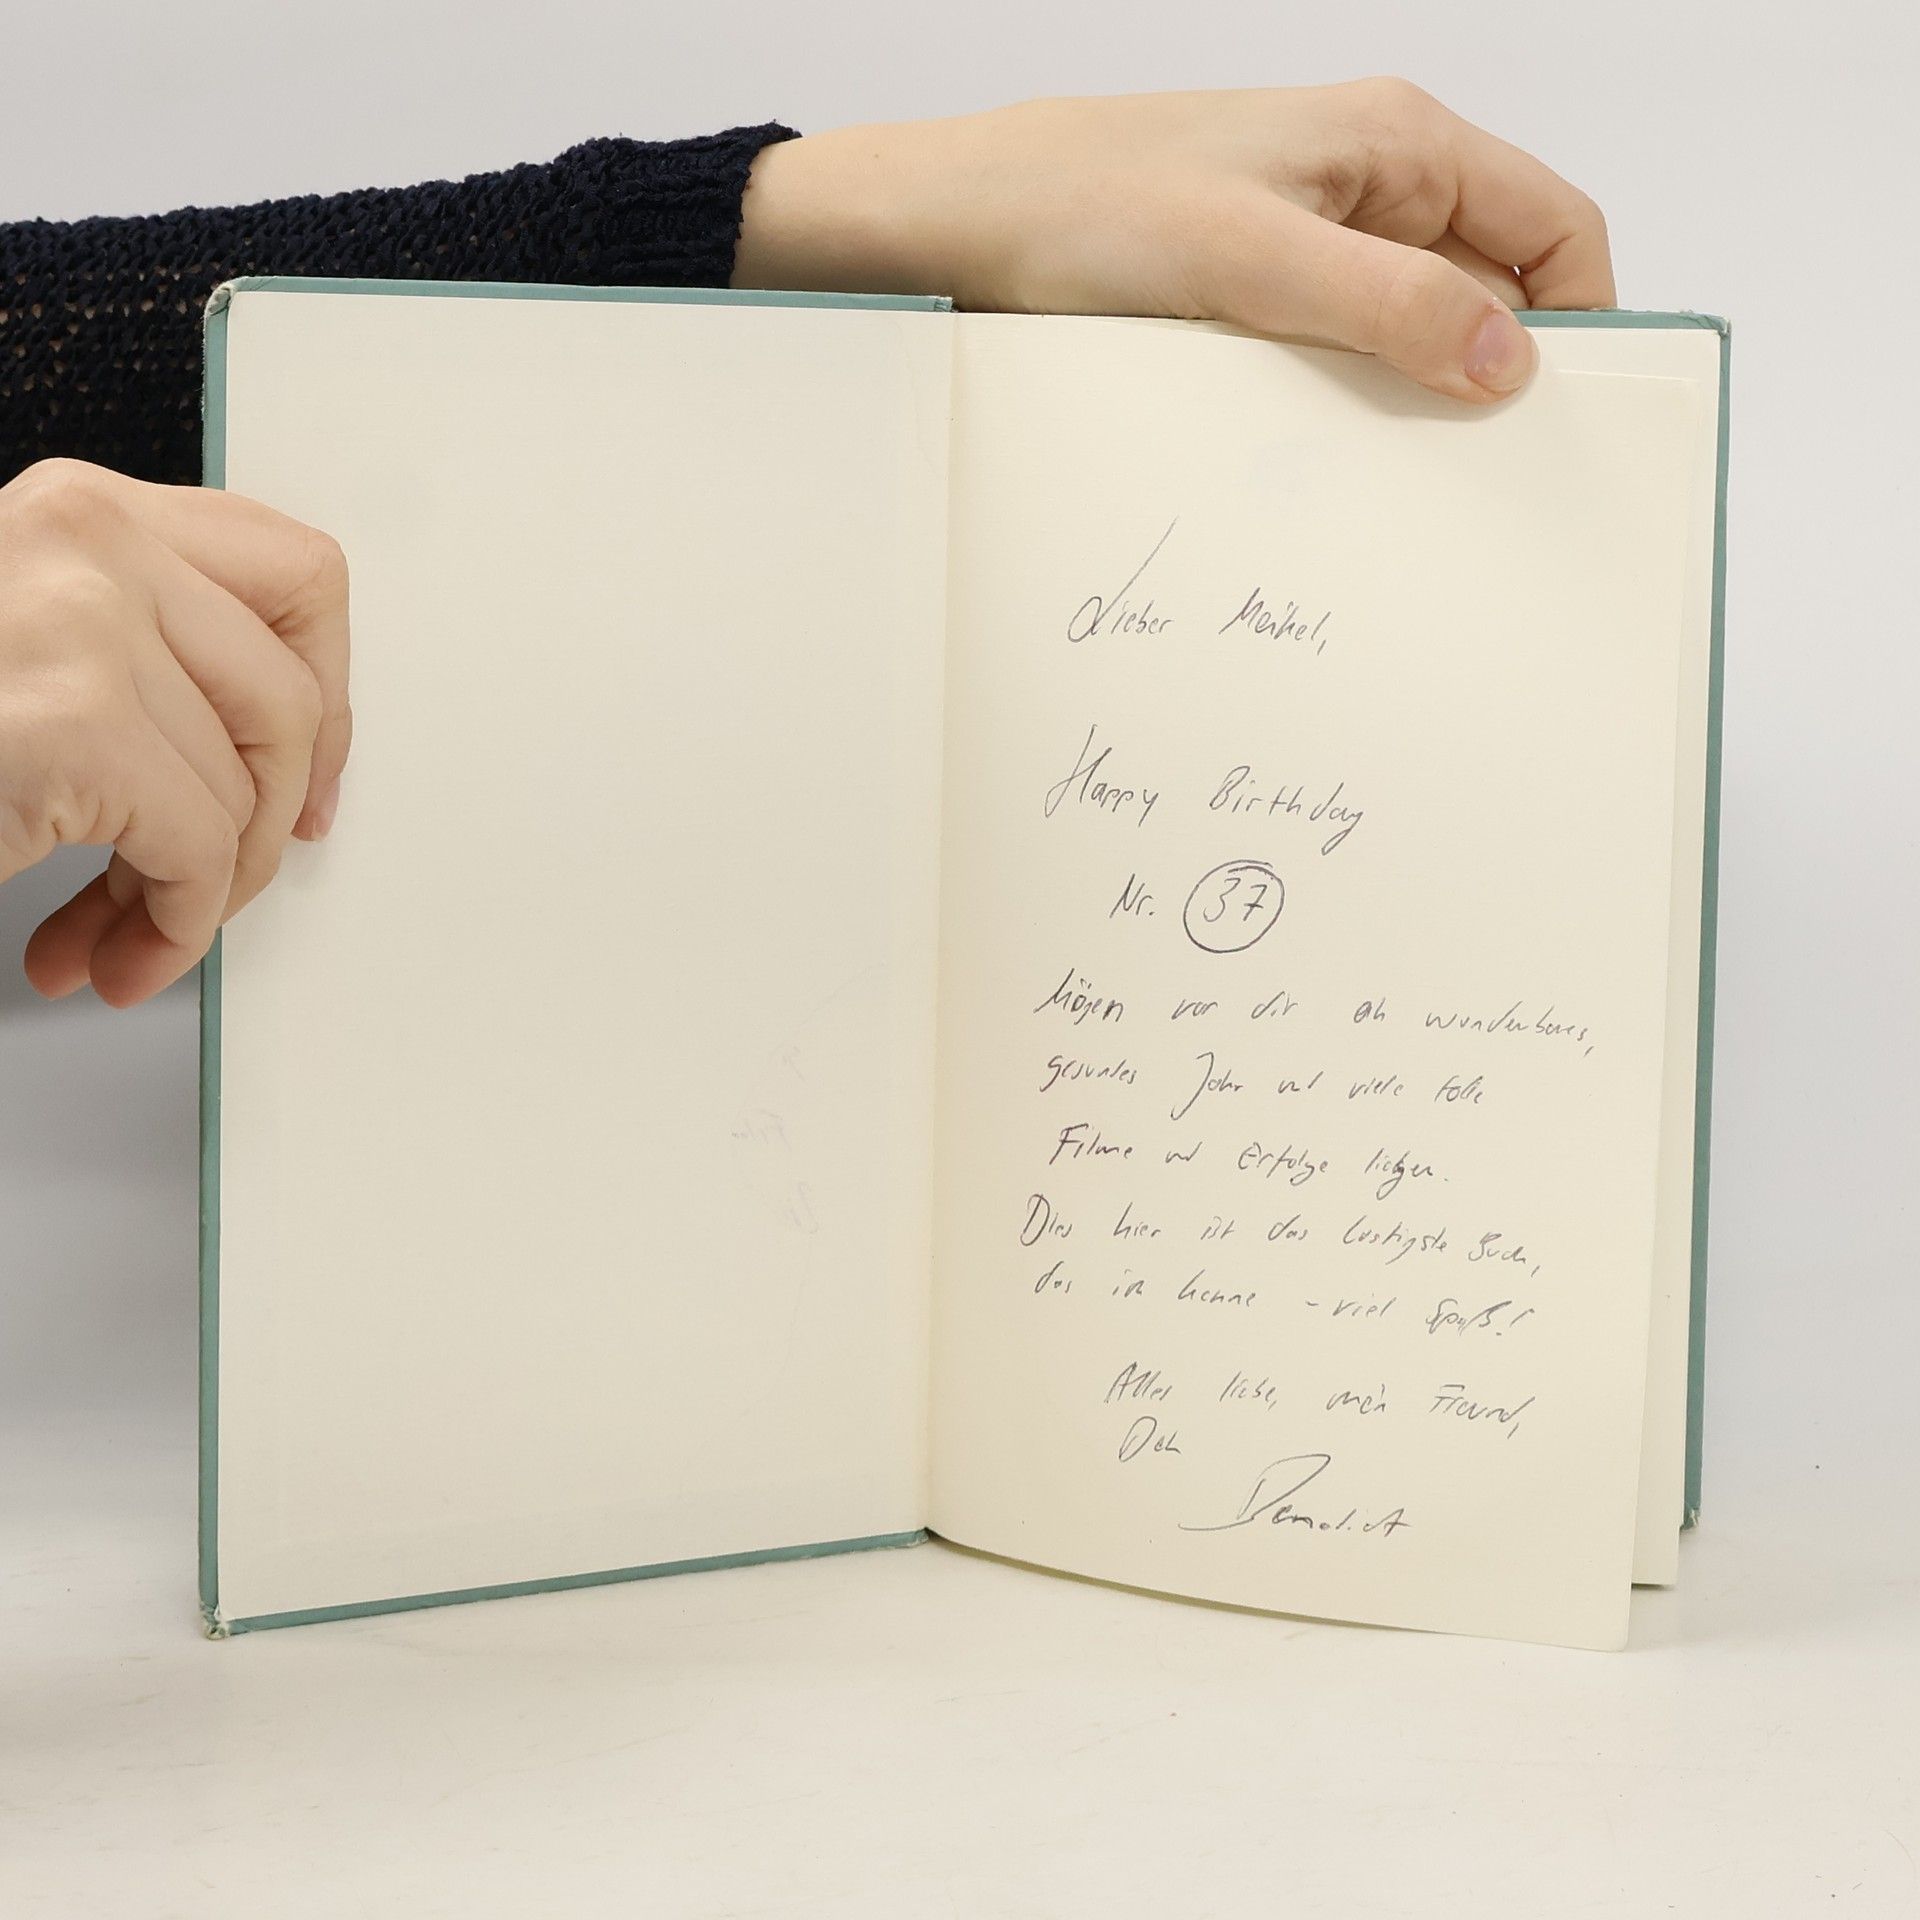 Lieber Meikel,
Happy Birthday
Nr. 37
Mögen vor dir ein wunderbares,
gesundes Jahr und viele tolle
Filme und Erfolge liegen.
Dies hier ist das lustigste Buch,
das ich kenne - viel Spaß!
Alles liebe, mein Freund,
Dein
Benedict